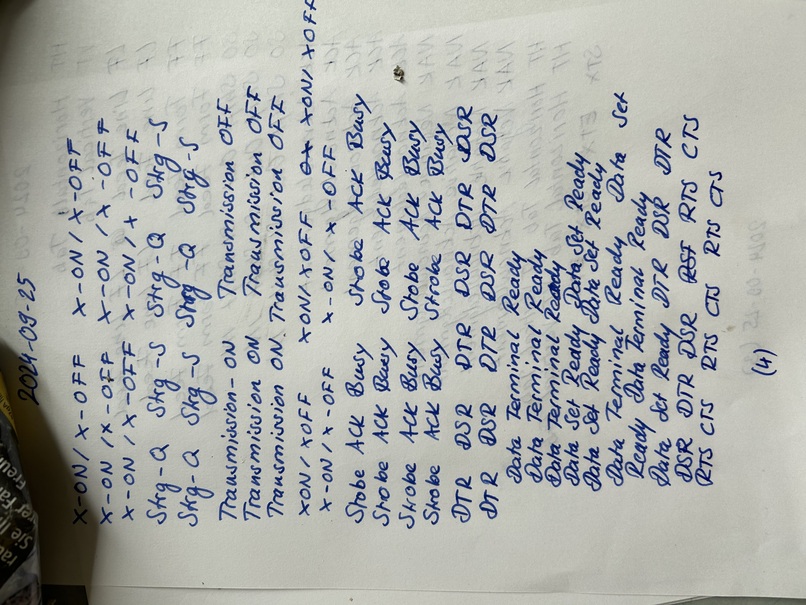 2024-09-25
X-ON / X-OFF X-ON / X-OFF
X-ON / X-OFF X-ON / X-OFF
X-ON / X-OFF X-ON / X-OFF
Strg-Q Strg-S Strg-Q Strg-S
Strg-Q Strg-S Strg-Q Strg-S
Transmission-ON Transmission OFF
Transmission ON Transmission OFF
Transmission ON. Transmission OFF
XON / XOFF XON / XOFF XON / XOFF
X-ON / X-OFF X-ON / X-OFF
Stobe ACK Busy Strobe ACK Busy
Strobe ACK Busy Strobe ACK Busy
Strobe ACK Busy Strobe ACK Busy
Strobe ACK Busy Strobe ACK Busy
DTR DSR DTR DSR DTR DSR
DTR DSR DTR DSR DTR DSR
Data Terminal Ready
Data Terminal Ready
Data Terminal Ready
Data Set Ready Data Set Ready
Data Set Ready Data Set Ready
Data Terminal Ready Data Set
Ready Data Terminal Ready
Data Set Ready DTR DSR DTR
DSR DTR DSR RST RTS CTS
RTS CTS RTS CTS RTS CTS
(4)